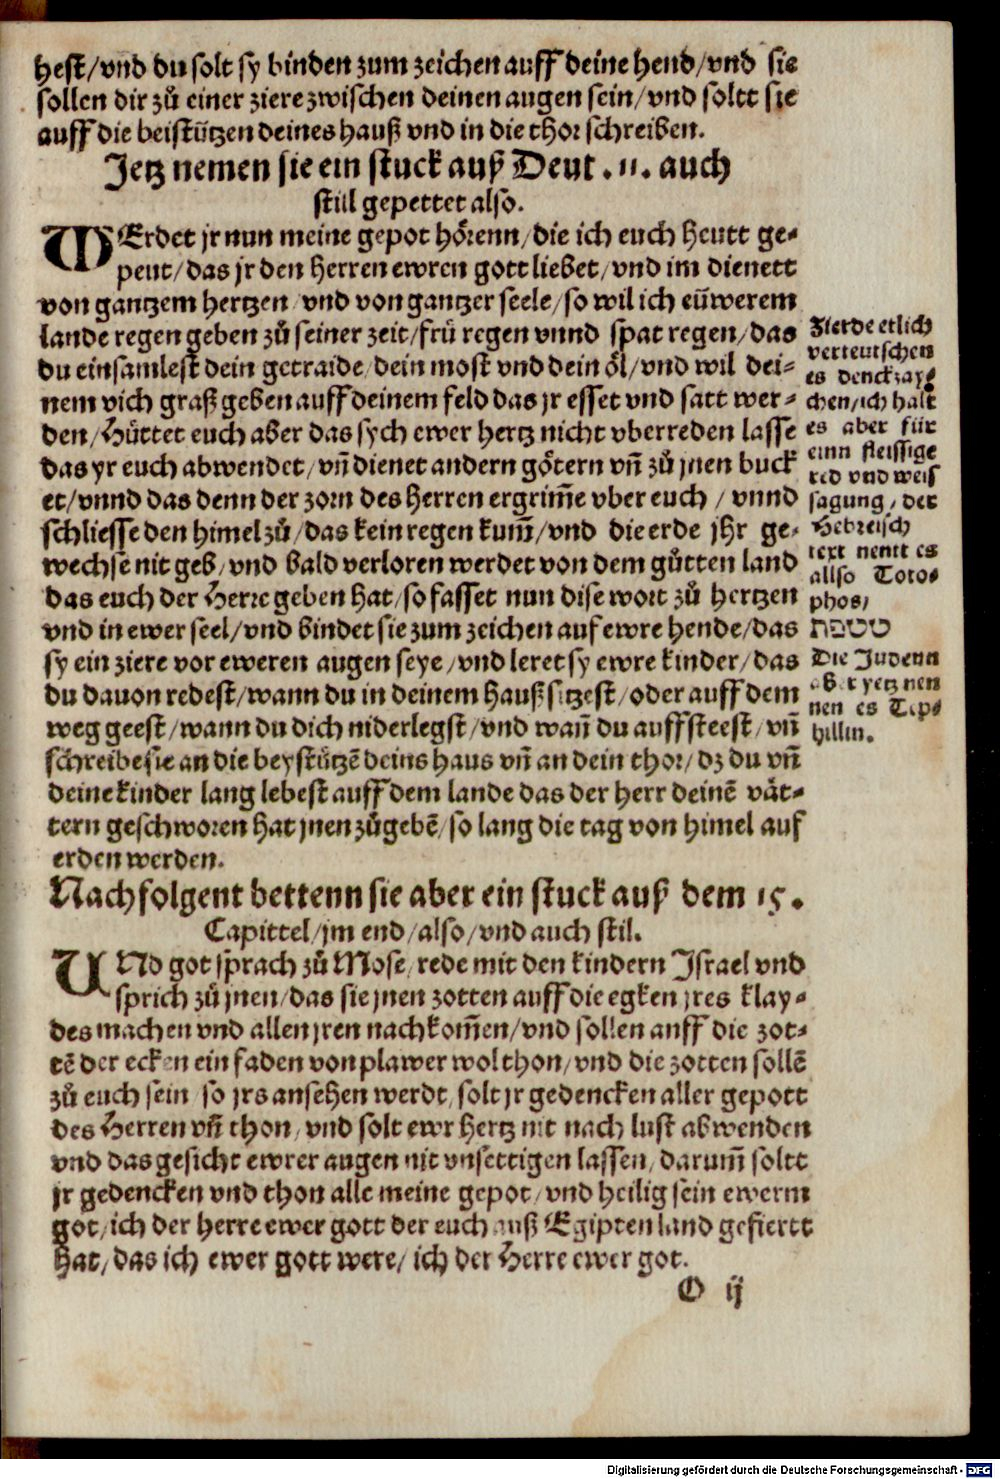 hest/vnd du solt sy binden zum zeichen auff deine hend/vnd sie
sollen dir zů einer ziere zwischen deinen augen sein/vnd soltt sie
auff die beistützen deines hauß vnd in die thor schreiben.
Jetz nemen sie ein stuck auß Deut . 11. auch
still gepettet also.
WErdet jr nun meine gepot hörenn/die ich euch heutt ge-
peut/das jr den Herren ewren gott liebet/vnd im dienett
von gantzem hertzen/vnd von gantzer seele/so wil ich eüwerem
lande regen geben zů seiner zeit/frů regen vnnd spat regen/das
du einsamlest dein getraide/dein most vnd dein öl/vnd wil dei-
nem vich graß geben auff deinem feld das jr esset vnd satt wer-
den/Hüttet euch aber das sych ewer hertz nicht vberreden lasse
das yr euch abwendet/vñ dienet andern götern vñ zů jnen buck
et/vnnd das denn der zorn des Herren ergrim̃e vber euch / vnnd
schliesse den himel zů/das kein regen kum̃/vnd die erde jhr ge-
wechse nit geb/vnd bald verloren werdet von dem gůtten land
das euch der Herre geben hat/so fasset nun dise wort zů hertzen
vnd in ewer seel/vnd bindet sie zum zeichen auf ewre hende/das
sy ein ziere vor eweren augen seye/vnd leret sy ewre kinder/das
du dauon redest/wann du in deinem hauß sitzest/oder auff dem
weg geest/wann du dich niderlegst/vnd wañ du auffsteest/vñ
schreibe sie an die beystützẽ deins haus vñ an dein thor/dz du vñ
deine kinder lang lebest auff dem lande das der herr deinẽ vät-
tern geschworen hat jnen zůgebẽ/so lang die tag von himel auf
erden werden.
Zierde etlich
verteutschen
es denckzay-
chen/ich halt
es aber für
einn fleissige
red vnd weis
sagung/der
Hebreisch
text nentt es
allso Toto-
phos/
טטפת
Die Judenn
aber yetz nen
nen es Tep-
hillin.
Nachfolgent bettenn sie aber ein stuck auß dem 15.
Capittel/jm end/also/vnd auch stil.
UNd got sprach zů Mose/rede mit den kindern Israel vnd
sprich zů jnen/das sie jnen zotten auff die egken jres klay-
des machen vnd allen jren nachkom̃en/vnd sollen auff die zot-
tẽ der ecken ein faden von plawer wol thon/vnd die zotten sollẽ
zů euch sein so jrs ansehen werdt/solt jr gedencken aller gepott
des Herren vñ thon/vnd solt ewr hertz nit nach lust abwenden
vnd das gesicht ewrer augen nit vnsettigen lassen/darum̃ soltt
jr gedencken vnd thon alle meine gepot/vnd heilig sein ewerm
got/ich der herre ewer gott der euch auß Egipten land gefiertt
hat/das ich ewer gott were/ich der Herre ewer got.
O ij
Digitalisierung gefördert durch die Deutsche Forschungsgemeinschaft - DFG